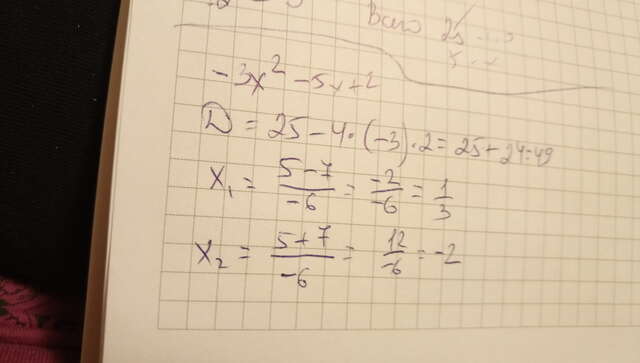 Всего 25
-3x² - 5x + 2
D = 25 - 4 · (-3) · 2 = 25 + 24 = 49
x₁ = (5 - 7)/(-6) = (-2)/(-6) = 1/3
x₂ = (5 + 7)/(-6) = 12/(-6) = -2